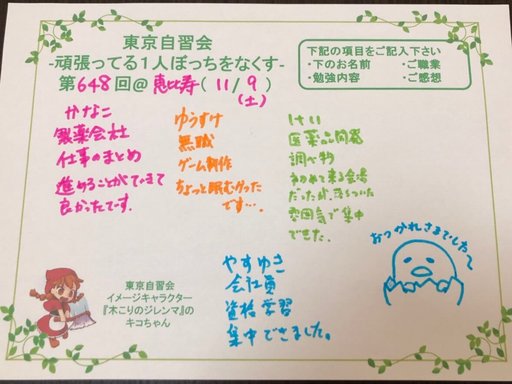 東京自習会
-頑張ってる1人ぼっちをなくす-
第648回@恵比寿(11/9)
(土)
下記の項目をご記入下さい
・下のお名前 ・ご職業
・勉強内容 ・ご感想
かなこ
製薬会社
仕事のまとめ
進めることができて
良かったです。
ゆうすけ
無職
ゲーム制作
ちょっと眠むかった
です…。
けい
医薬品開発
調べ物
初めて来る会場
だったが、落ちついた
雰囲気で集中
できた。
おつかれさまでした〜
やすゆき
会社員
資格学習
集中できました。
東京自習会
イメージキャラクター
『木こりのジレンマ』の
キコちゃん